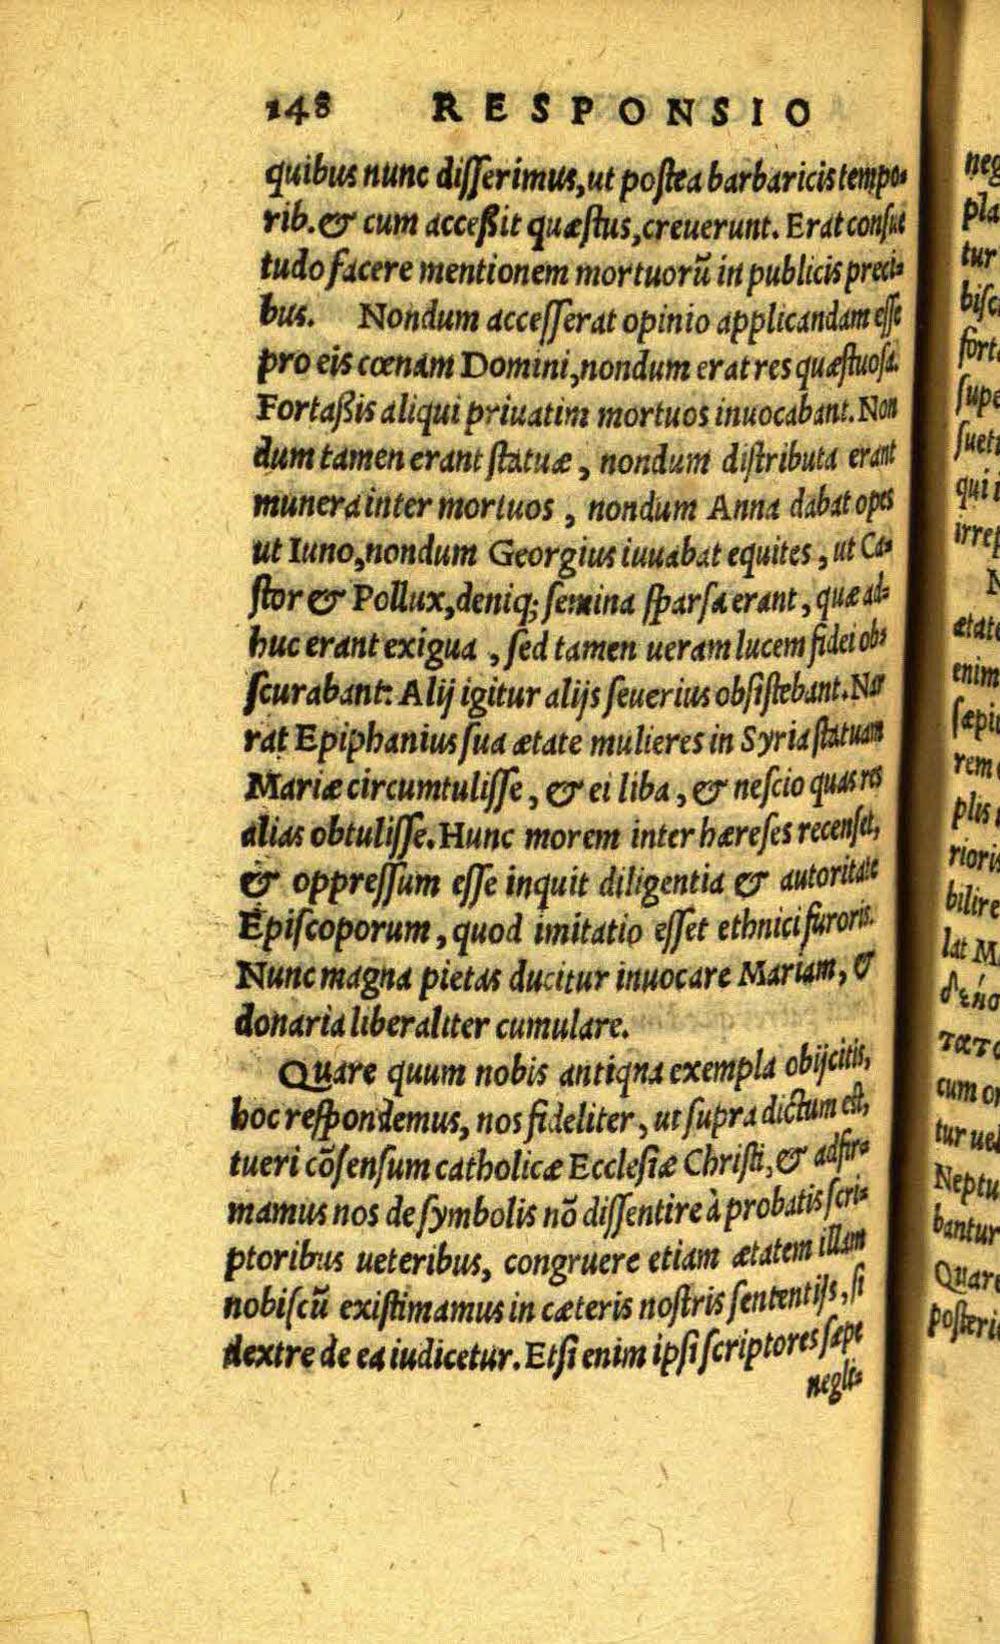 148 RESPONSIO
quibus nunc disserimus, ut postea barbaricis tempo-
rib. & cum acceßit quæstus, creuerunt. Erat consue
tudo facere mentionem mortuorū in publicis preci-
bus. Nondum accesserat opinio applicandam esse
pro eis cœnam Domini, nondum erat res quæstuosa.
Fortaßis aliqui priuatim mortuos inuocabant. Non
dum tamen erant statuæ, nondum distributa erant
munera inter mortuos, nondum Anna dabat opes
ut Iuno, nondum Georgius iuuabat equites, ut Ca-
stor & Pollux, deniq; semina sparsa erant, quæ ad-
huc erant exigua, sed tamen ueram lucem fidei ob-
scurabant: Alij igitur alijs seuerius obsistebant. Nar
rat Epiphanius sua ætate mulieres in Syria statuam
Mariæ circumtulisse, & ei liba, & nescio quas res
alias obtulisse. Hunc morem inter hæreses recenset,
& oppressum esse inquit diligentia & autoritate
Episcoporum, quod imitatio esset ethnici furoris.
Nunc magna pietas ducitur inuocare Mariam, &
donaria liberaliter cumulare.
Quare quum nobis antiqna exempla obijcitis,
hoc respondemus, nos fideliter, ut supra dictum est,
tueri cōsensum catholicæ Ecclesiæ Christi, & adfir-
mamus nos de symbolis nō dissentire à probatis scri-
ptoribus ueteribus, congruere etiam ætatem illam
nobiscū existimamus in cæteris nostris sententijs, si
dextre de ea iudicetur. Etsi enim ipsi scriptores sæpe
negli-